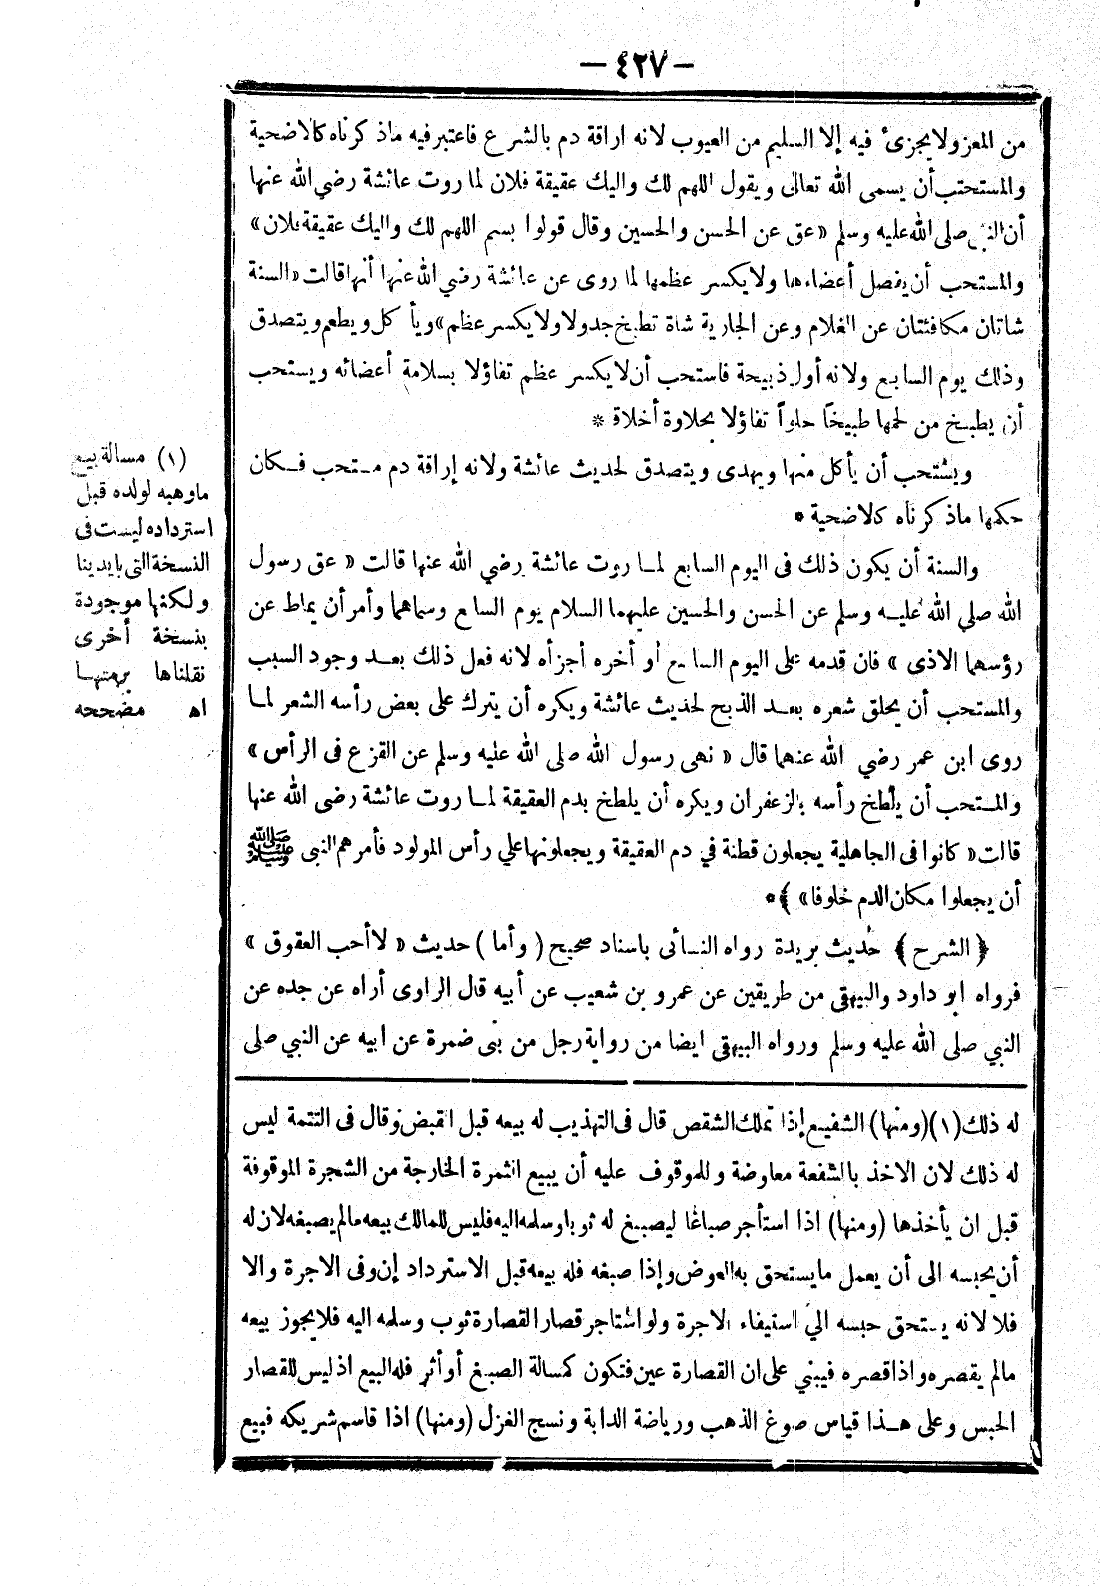 — ٤٢٧ —
من المعز ولا يجزئ فيه إلا السليم من العيوب لانه اراقة دم بالشرع فاعتبر فيه ماذكرناه كالاضحية
والمستحتب أن يسمى الله تعالى ويقول اللهم لك واليك عقيقة فلان لما روت عائشة رضي الله عنها
أن النبي صلى الله عليه وسلم « عق عن الحسن والحسين وقال قولوا بسم اللهم لك واليك عقيقة فلان »
والمستحب أن يفصل أعضاءها ولا يكسر عظمها لما روى عن عائشة رضي الله عنها أنها قالت « السنة
شاتان مكافئتان عن الغلام وعن الجارية شاة تطبخ جدولا ولا يكسر عظم » ويأكل ويطعم ويتصدق
وذلك يوم السابع ولانه أول ذبيحة فاستحب أن لا يكسر عظم تفاؤلا بسلامة أعضائه ويستحب
أن يطبخ من لحمها طبيخا حلوا تفاؤلا بحلاوة أخلاقه *
ويستحب أن يأكل منها ويهدى ويتصدق لحديث عائشة ولانه إراقة دم مستحب فكان
حكمها ماذكرناه كالاضحية *
والسنة أن يكون ذلك فى اليوم السابع لما روت عائشة رضي الله عنها قالت « عق رسول
الله صلي الله عليه وسلم عن الحسن والحسين عليهما السلام يوم السابع وسماهما وأمر أن يماط عن
رؤسهما الاذى » فان قدمه على اليوم السابع أو أخره أجزأه لانه فعل ذلك بعد وجود السبب
والمستحب أن يحلق شعره بعد الذبح لحديث عائشة ويكره أن يترك على بعض رأسه الشعر لما
روى ابن عمر رضي الله عنهما قال « نهى رسول الله صلى الله عليه وسلم عن القزع فى الرأس »
والمستحب أن يلطخ رأسه بالزعفران ويكره أن يلطخ بدم العقيقة لما روت عائشة رضى الله عنها
قالت « كانوا فى الجاهلية يجعلون قطنة في دم العقيقة ويجعلونها علي رأس المولود فأمرهم النبى ﷺ
أن يجعلوا مكان الدم خلوفا » ﴾ *
﴿ الشرح ﴾ حديث بريدة رواه النسائى باسناد صحيح ( وأما ) حديث « لا أحب العقوق »
فرواه ابو داود والبيهقى من طريقين عن عمرو بن شعيب عن أبيه قال الراوى أراه عن جده عن
النبي صلى الله عليه وسلم ورواه البيهقى ايضا من رواية رجل من بنى ضمرة عن ابيه عن النبي صلى
له ذلك (١) (ومنها) الشفيع إذا تملك الشقص قال فى التهذيب له بيعه قبل القبض وقال فى التتمة ليس
له ذلك لان الاخذ بالشفعة معاوضة وللموقوف عليه أن يبيع الثمرة الخارجة من الشجرة الموقوفة
قبل ان يأخذها (ومنها) اذا استأجر صباغا ليصبغ له ثوبا وسلمه اليه فليس للمالك بيعه مالم يصبغه لان له
أن يحبسه الى أن يعمل مايستحق به العوض وإذا صبغه فله بيعه قبل الاسترداد إن وفى الاجرة والا
فلا لانه يستحق حبسه الي استيفاء الاجرة ولو استاجر قصار القصارة ثوب وسلمه اليه فلا يجوز بيعه
مالم يقصره واذا قصره فيبنى على ان القصارة عين فتكون كمسالة الصبغ أو أثر فله البيع اذ ليس للقصار
الحبس وعلى هذا قياس صوغ الذهب ورياضة الدابة ونسج الغزل (ومنها) اذا قاسم شريكه فبيع
(١) مسالة بيع
ماوهبه لولده قبل
استرداده ليست فى
النسخة التى بايدينا
ولكنها موجودة
بنسخة أخرى
نقلناها برمتها
اه مصححه